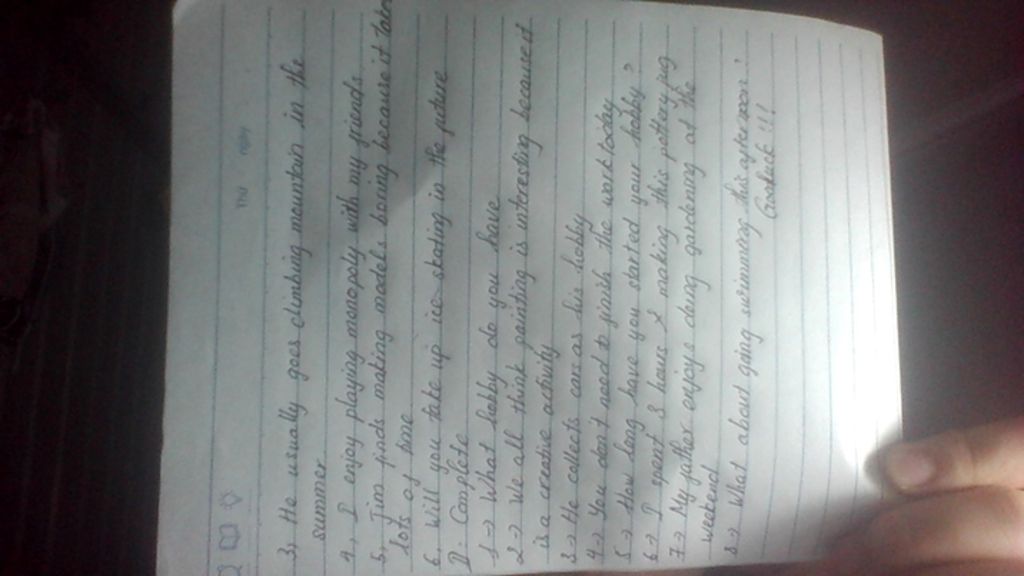 3, He usually goes climbing mountain in the
summer
4, I enjoy playing monopoly with my friends
5, Jim finds making models boring because it takes
lots of time
6, Will you take up ice-skating in the future
D. Complete
1-> What hobby do you have
2-> We all think painting is interesting because it
is a creative activity
3-> He collects cars as his hobby
4-> You don't need to finish the work today
5-> How long have you started your hobby?
6-> I spent 3 hours making this pottery jug
7-> My father enjoys doing gardening at the
weekend
8-> What about going swimming this afternoon?